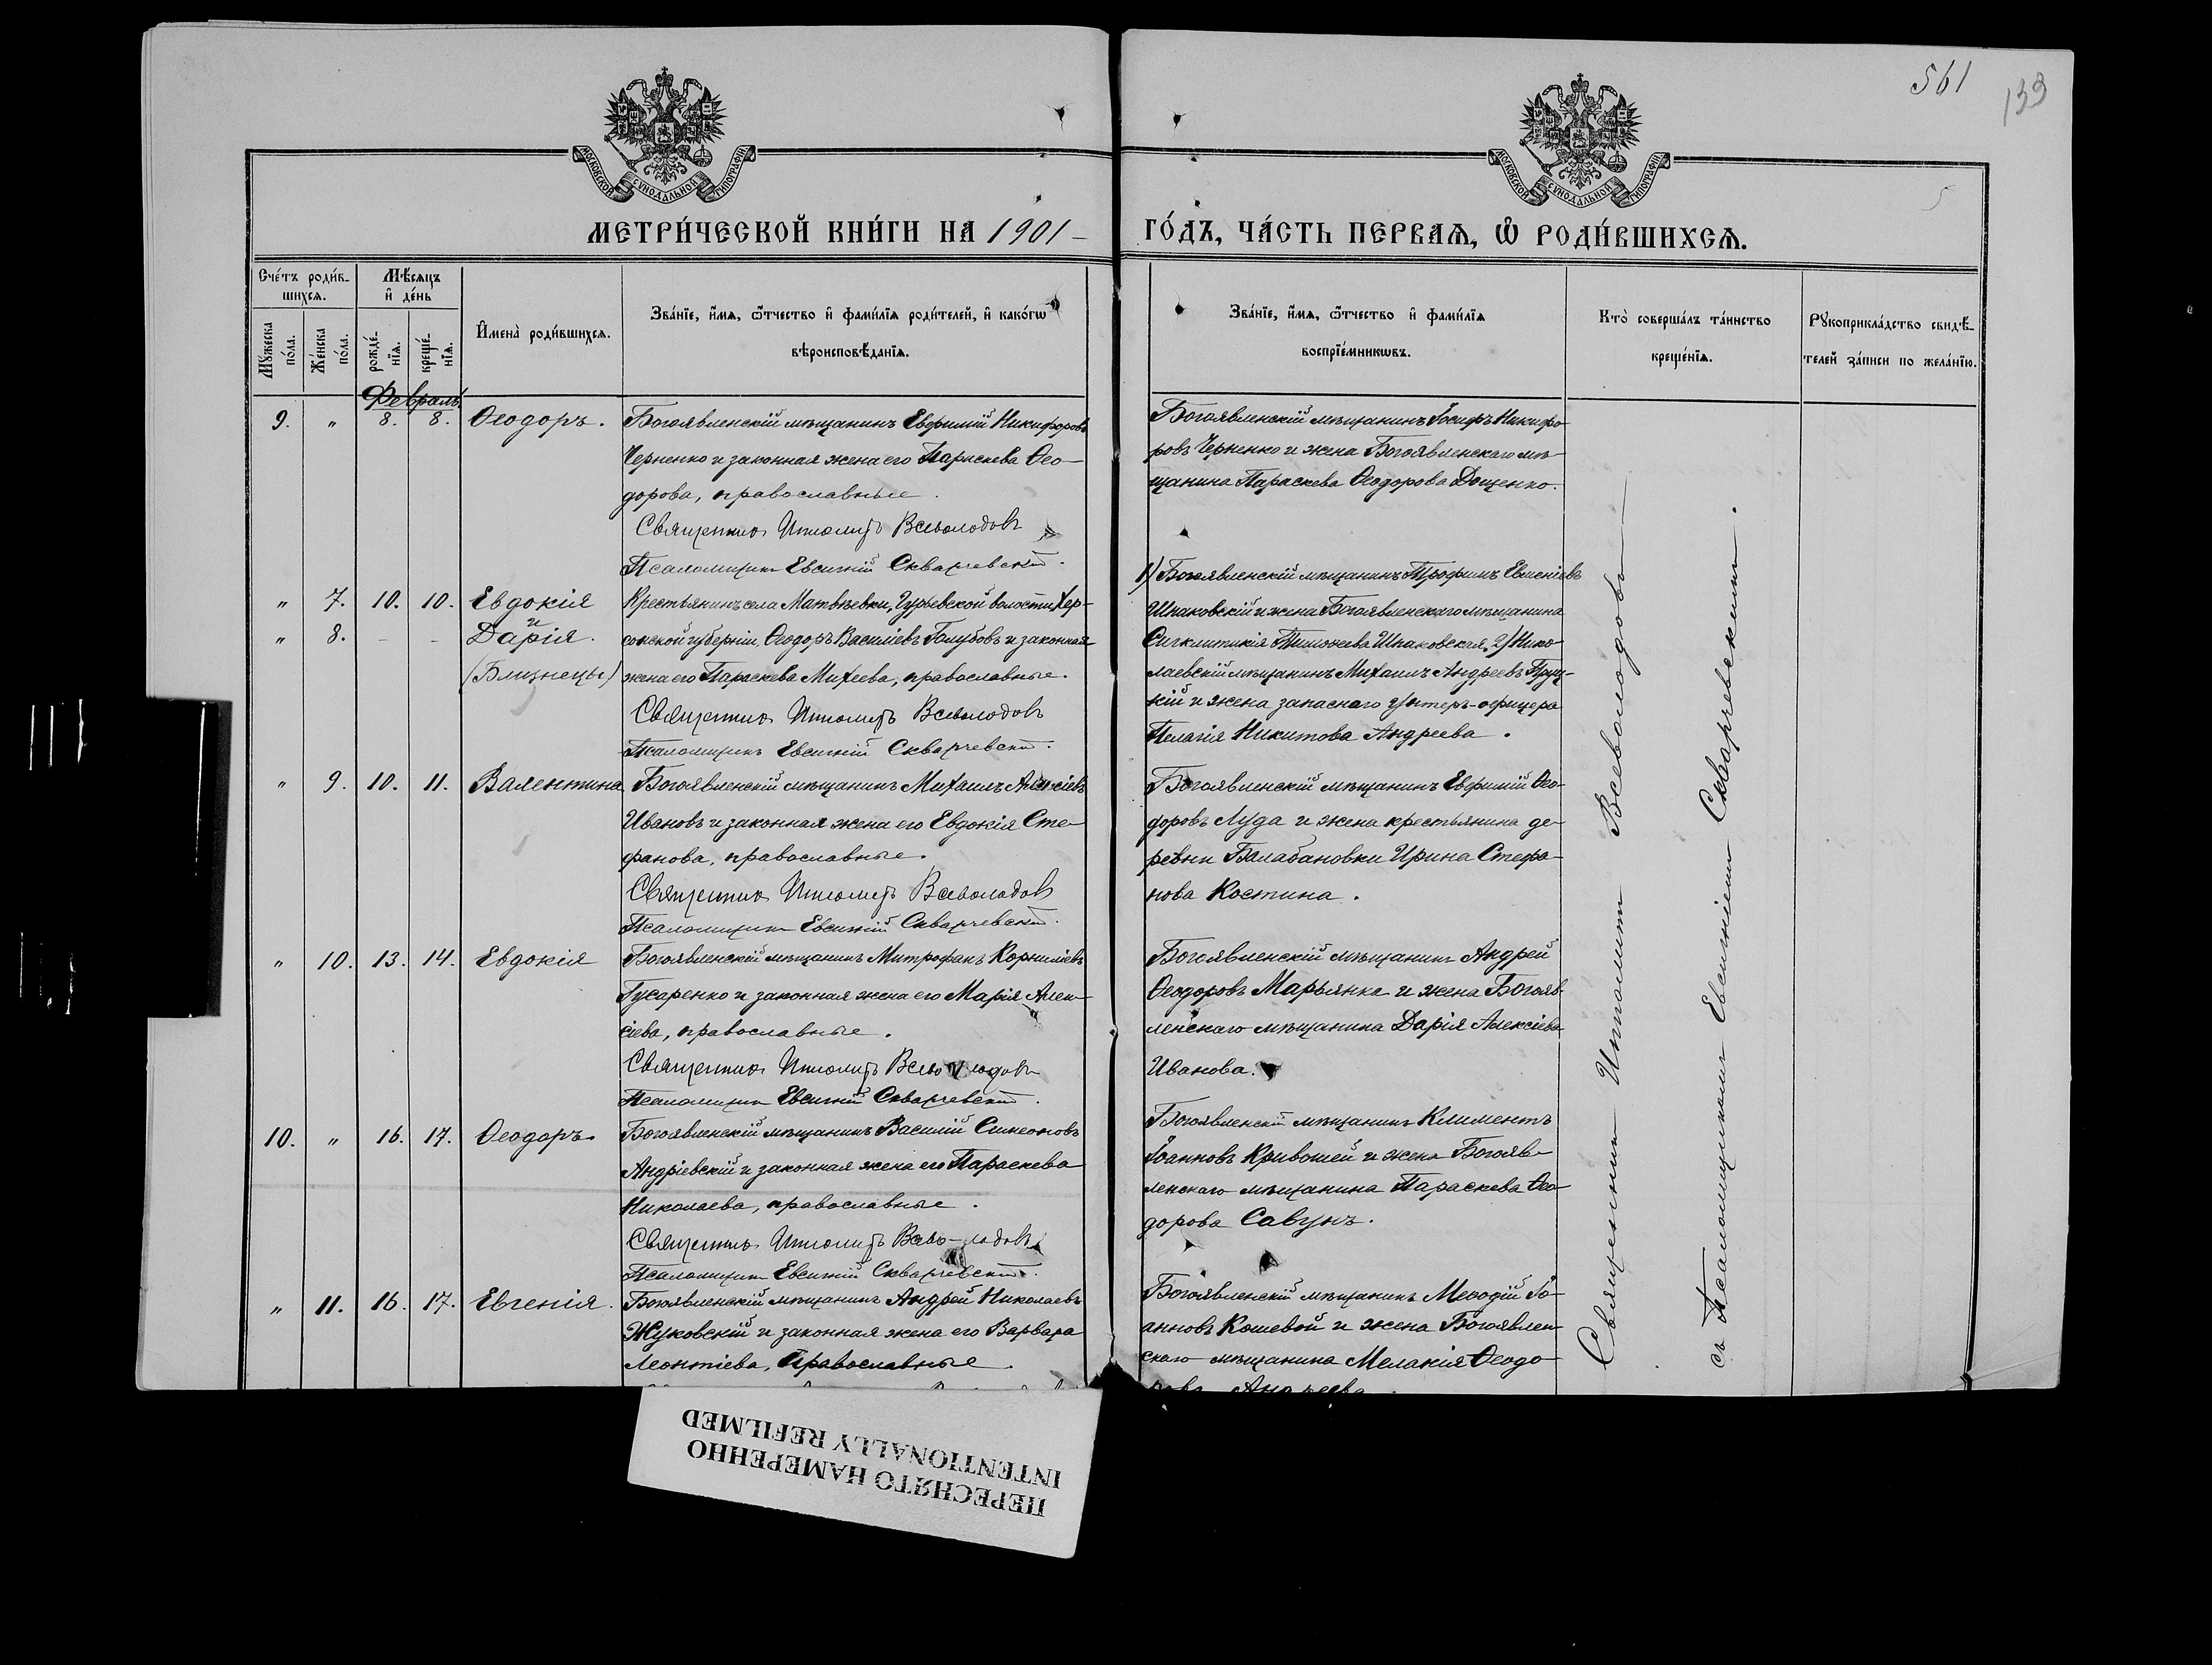 561
133
5
МОСКОВСКОЙ СѴНОДАЛЬНОЙ ТИПОГРАФІИ
МОСКОВСКОЙ СѴНОДАЛЬНОЙ ТИПОГРАФІИ
МЕТРИ́ЧЕСКОЙ КНИ́ГИ НА 1901 –
ГО́ДЪ, ЧА́СТЬ ПЕРВАѦ, Ѡ РОДИ́ВШИХСѦ.
Сче́тъ роди́в-
шихся.
Мѣ́сяцъ
и̂ де́нь
Мꙋжеска по́ла.
Же́нска по́ла.
рожде́-
нїя.
креще́-
нїя.
И̂мена̀ роди́вшихся.
Зва́нїе, и̂́мя, ѿтчество и̂ фами́лїя роди́телей, и̂ како́гѡ
вѣроисповѣ́данїя.
Зва́нїе, и̂́мя, ѿтчество и̂ фами́лїя
воспрїе́мникѡвъ.
Кто̀ соверша́лъ та́инство
креще́нїя.
Рꙋкоприкла́дство свидѣ́-
телей за́писи по жела́нїю.
Февраль
9. " 8. 8. Ѳеодоръ. Богоявленскій мѣщанинъ Евфимій Никифоровъ
Черненко и законная жена его Параскева Ѳео-
дорова, православные.
Священникъ Ипполитъ Всеволодовъ
Псаломщикъ Евсигній Скварчевскій.
Богоявленскій мѣщанинъ Іосифъ Никифо-
ровъ Черненко и жена Богоявленскаго мѣ-
щанина Параскева Ѳеодорова Доценко.
" 7. 10. 10. Евдокія
и
" 8. - - Дарія.
(Близнецы)
Крестьянинъ села Матвѣевки, Гурьевской волости, Хер-
сонской губерніи, Ѳеодоръ Василіевъ Голубовъ и законная
жена его Параскева Михеева, православные.
Священникъ Ипполитъ Всеволодовъ
Псаломщикъ Евсигній Скварчевскій.
1) Богоявленскій мѣщанинъ Трофимъ
Шпаковскій и жена Богоявленскаго мѣщанина
Синклитикія Тимоѳеева Шпаковская. 2) Нико-
лаевскій мѣщанинъ Михаилъ Андреевъ
кій и жена запаснаго унтеръ-офицера
Пелагія Никитова Андреева.
" 9. 10. 11. Валентина Богоявленскій мѣщанинъ Михаилъ Алексіевъ
Ивановъ и законная жена его Евдокія Сте-
фанова, православные.
Священникъ Ипполитъ Всеволодовъ
Псаломщикъ Евсигній Скварчевскій.
Богоявленскій мѣщанинъ Евфимій Ѳео-
доровъ Луда и жена крестьянина де-
ревни Балабановки Ирина Стефа-
нова Костина.
" 10. 13. 14. Евдокія Богоявленскій мѣщанинъ Митрофанъ Корниліевъ
Гусаренко и законная жена его Марія Алек-
сіева, православные.
Священникъ Ипполитъ Всеволодовъ
Псаломщикъ Евсигній Скварчевскій.
Богоявленскій мѣщанинъ Андрей
Ѳеодоровъ Марьянка и жена Богояв-
ленскаго мѣщанина Дарія Алексіева
Иванова.
10. " 16. 17. Ѳеодоръ. Богоявленскій мѣщанинъ Василій Симеоновъ
Андріевскій и законная жена его Параскева
Николаева, православные.
Священникъ Ипполитъ Всево-лодовъ
Псаломщикъ Евсигній Скварчевскій.
Богоявленскій мѣщанинъ Климентъ
Іоанновъ Кривошей и жена Богояв-
ленскаго мѣщанина Параскева Ѳео-
дорова Савунъ.
" 11. 16. 17. Евгенія. Богоявленскій мѣщанинъ Андрей Николаевъ
Жуковскій и законная жена его Варвара
Леонтіева, православные.
Богоявленскій мѣщанинъ Меѳодій Іо-
анновъ Кошевой и жена Богоявлен-
скаго мѣщанина Меланія Ѳеодо-
рова Андреева
Священникъ Ипполитъ Всеволодовъ
съ Псаломщикомъ Евсигніемъ Скварчевскимъ.
ПЕРЕСНЯТО НАМЕРЕННО
INTENTIONALLY REFILMED